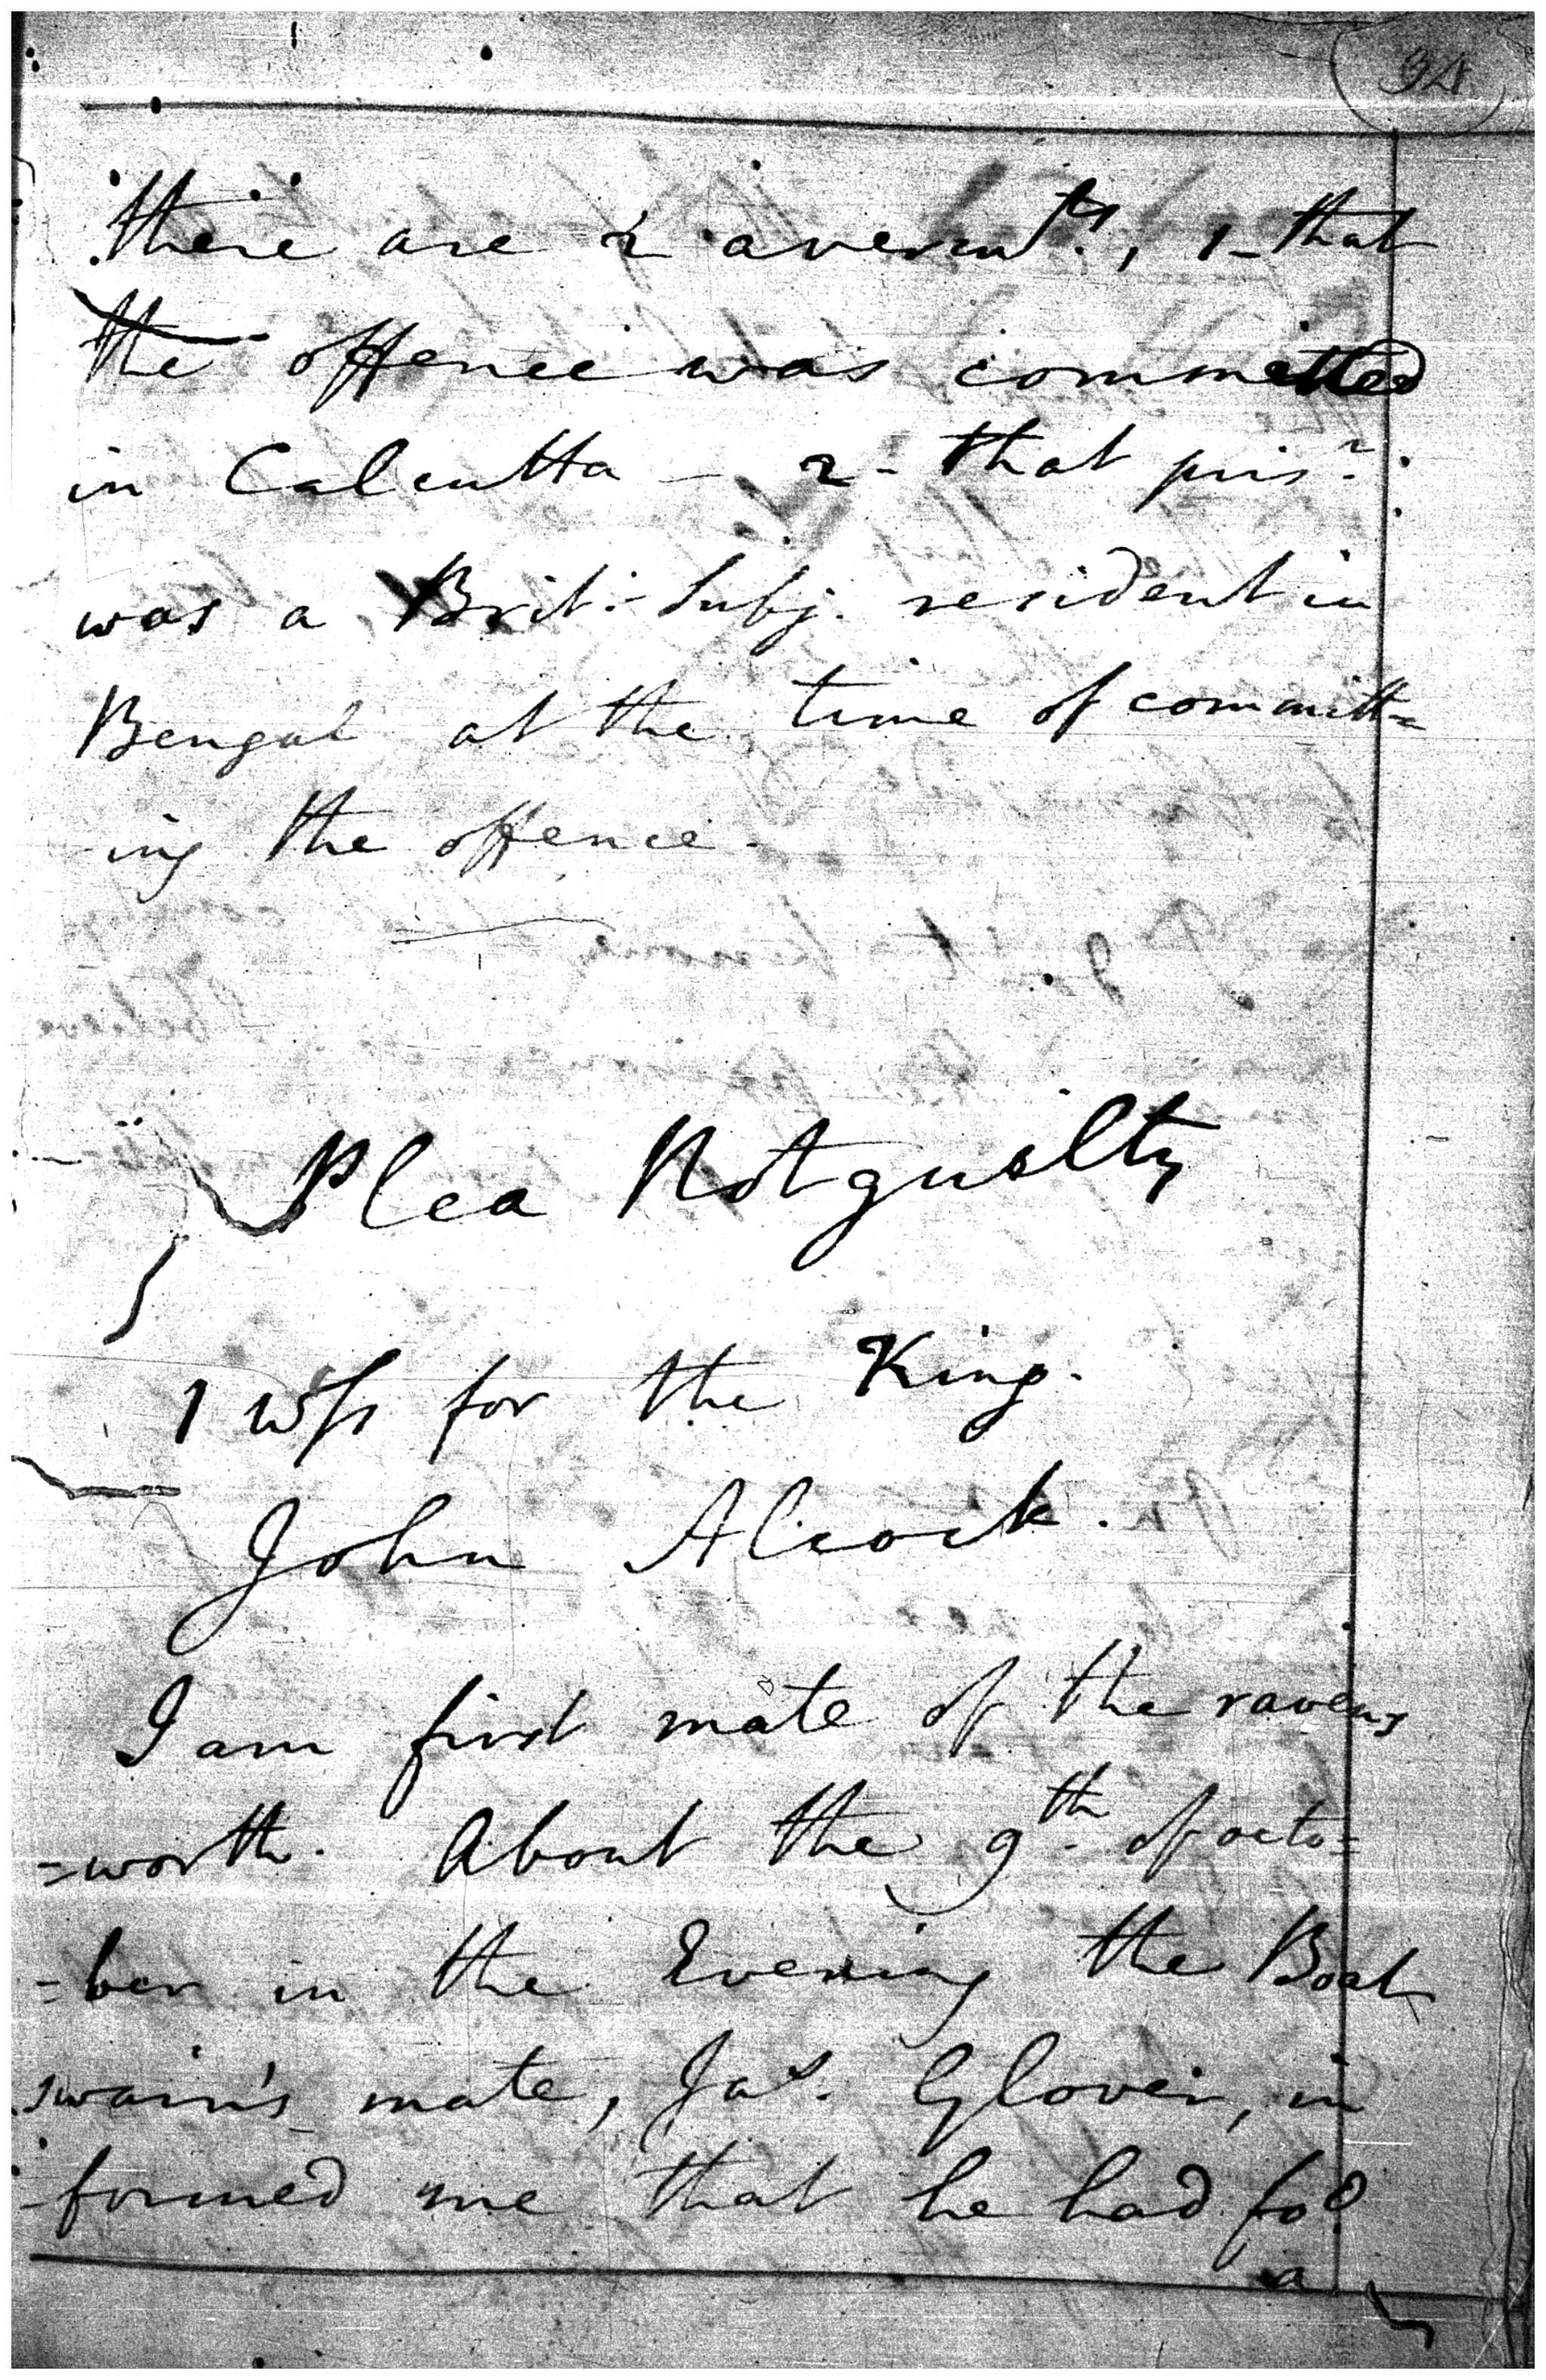 34
there are 2 averm.ts, 1- that
the offence was committed
in Calcutta - 2- that pris.r
was a Brit.- Subj. resident in
Bengal at the time of committ=
ing the offence.
Plea Not guilty
1 Wss for the King.
John Alcock.
I am first mate of the ravens
=worth. About the 9th of octo=
=ber in the Evening the Boat
swain's mate, Jas. Glover, in
-formed me that he had fo.d
a